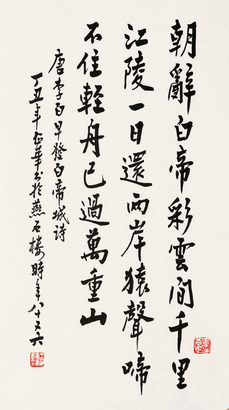 朝辭白帝彩雲間千里
江陵一日還兩岸猿聲啼
不住輕舟已過萬重山
唐李白早發白帝城詩
丁丑年正華書於燕石樓時年八十又六